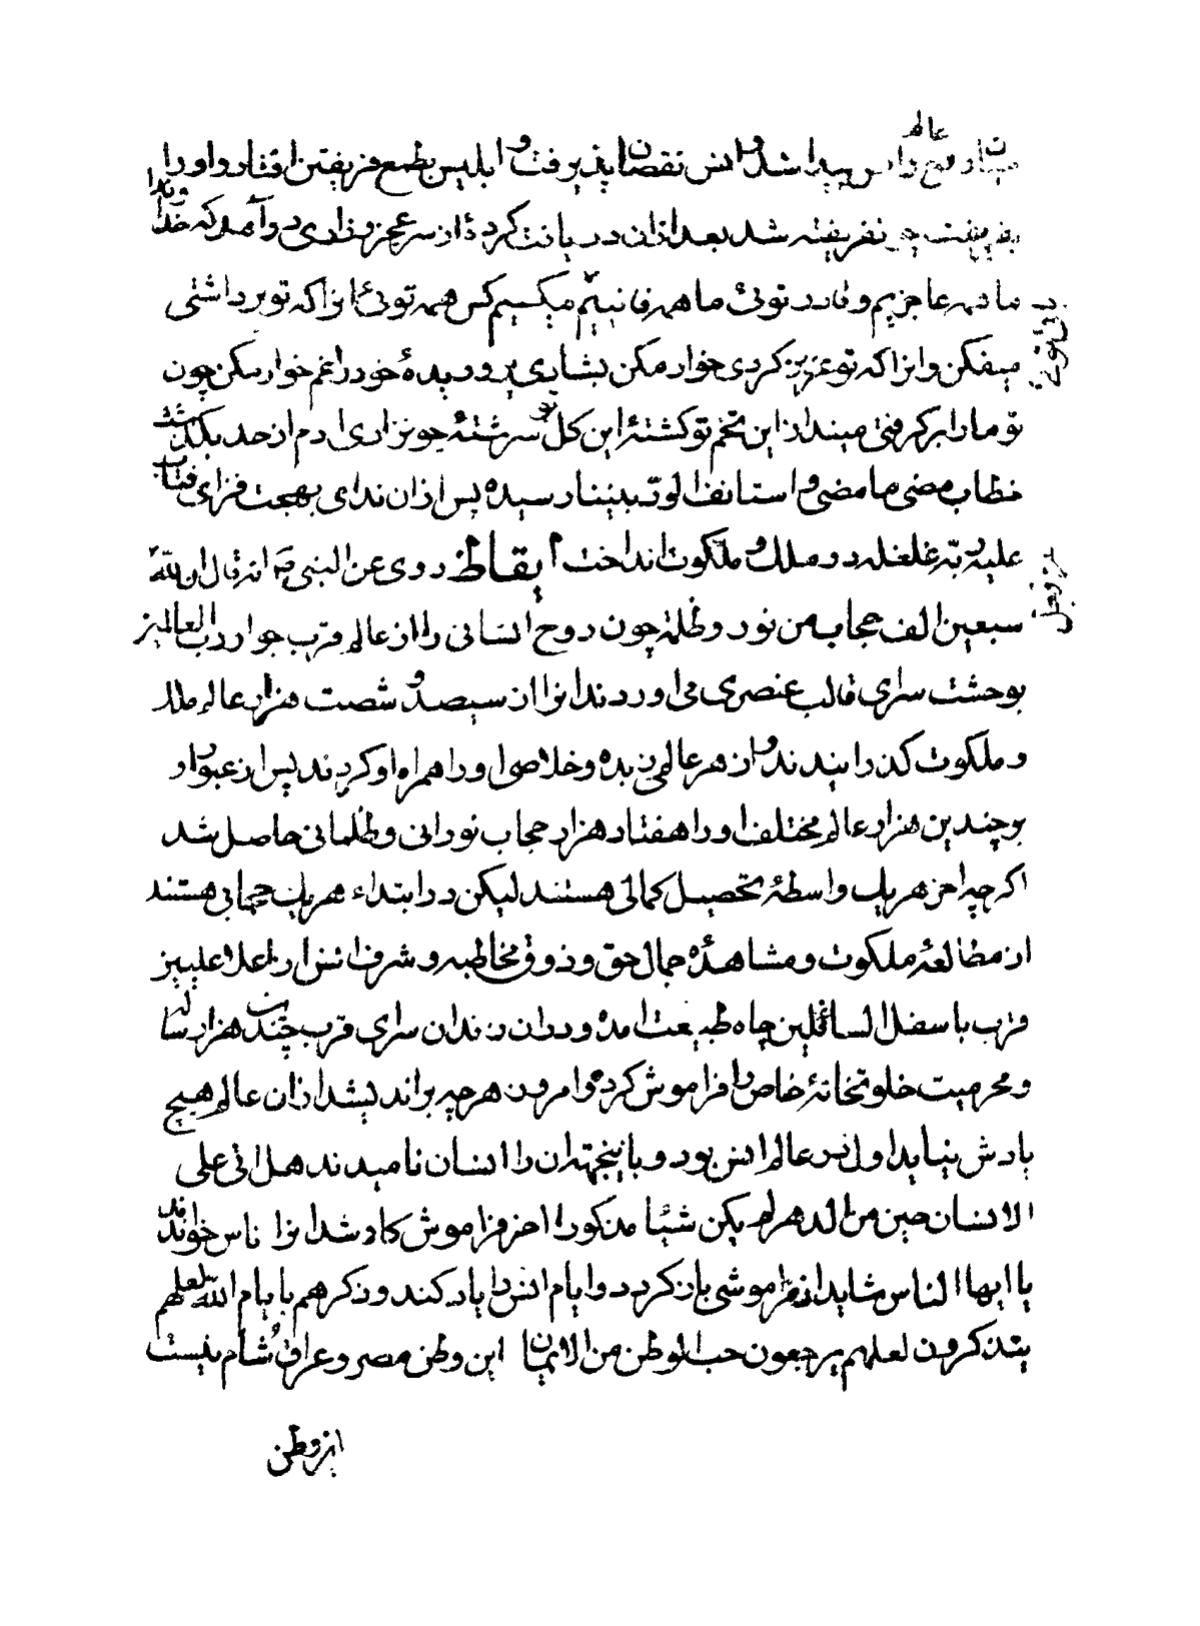 پیدا شد و انس نقصان پذیرفت و ابلیس بطمع فریفتن افتاد و او را
بفریفت چون فریفته شد بعد ازان دریافت کرد از سر عجز و زاری در آمد که خداوندا
ما همه عاجزیم و قادر توئی ما همه فانییم میکسیم کس همه توئی انرا که تو برداشتی
میفکن و انرا که تو عزیز کردی خوار مکن بشادی پروریدهٔ خود را غم خوار مکن چون
تو ما را برکرفتی مینداز این تخم تو کشتهٔ این کل تو سرشتهٔ چو نزاری ادم از حد بکذشت
خطاب مضی ما مضی و استانف الود بیننا رسیده پس ازان ندای بهجت فزای فتاب
علیه ربه غلغله در ملک و ملکوت انداخت ایقاظ روی عن النبی صم انه قال ان لله
سبعین الف حجاب من نور و ظلمة چون روح انسانی را از عالم قرب جوار رب العالمین
بوحشت سرای قالب عنصری می اوردند انرا از سیصد و شصت هزار عالم ملک
و ملکوت کذرانیدند و از هر عالمی زبده و خلاصه او را همراه او کردند پس از عبور او
بر چندین هزار عالم مختلف او را هفتاد هزار حجاب نورانی و ظلمانی حاصل شد
اکرچه اخر هریک واسطهٔ تحصیل کمالی هستند لیکن در ابتداء هریک حجابی هستند
از مطالعهٔ ملکوت و مشاهدهٔ جمال حق و ذوق مخاطبه و شرف انس از اعلا علیین
قرب باسفل السافلین چاه طبیعت امده و دران زندان سرای قرب چندین هزار ساله
و محرمیت خلوتخانهٔ خاص را فراموش کرده و امروز هرچه براندیشد ازان عالم هیچ
یادش نیاید اول در عالم انس بود و باینجهة ان را انسان نامیدند هل اتی علی
الانسان حین من الدهر لم یکن شیئا مذکورا اخر فراموش کار شد انرا ناس خواندند
یا ایها الناس شاید از فراموشی باز کردد و ایام انس را یاد کند و ذکرهم بایام الله لعلهم
یتذکرون لعلهم یرجعون حب الوطن من الایمان این وطن مصر و عراق و شام نیست
این وطن